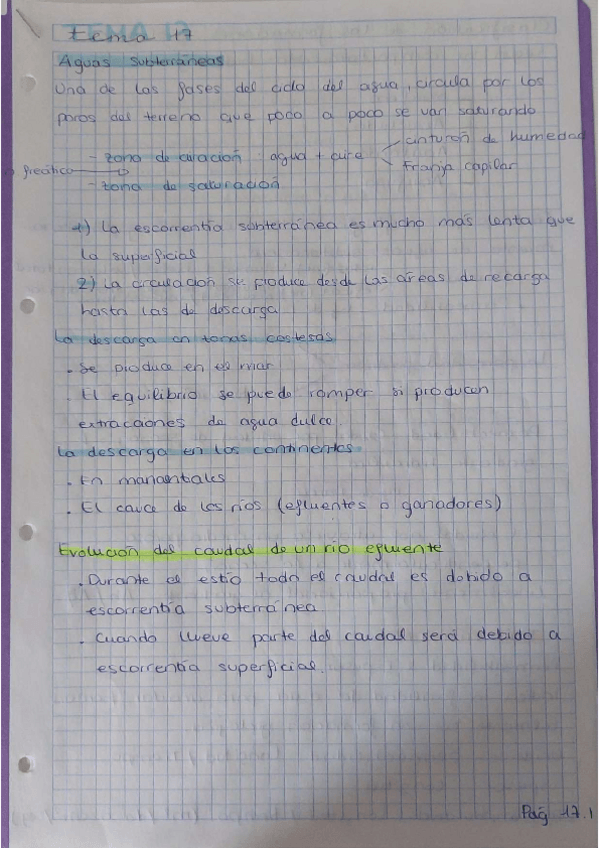 tema 17
Aguas subterráneas
Una de las fases del ciclo del agua, circula por los
poros del terreno que poco a poco se van saturando
- zona de aireación agua + aire cinturón de humedad
franja capilar
freático
- zona de saturación
1) La escorrentía subterránea es mucho más lenta que
la superficial
2) La circulación se produce desde las áreas de recarga
hasta las de descarga
La descarga en zonas costeras
. Se produce en el mar
. El equilibrio se puede romper si producen
extracciones de agua dulce.
La descarga en los continentes
. En manantiales
. El cauce de los ríos (efluentes o ganadores)
Evolución del caudal de un río efluente
. Durante el estío todo el caudal es debido a
escorrentía subterránea
. Cuando llueve parte del caudal será debido a
escorrentía superficial.
Pág 17.1